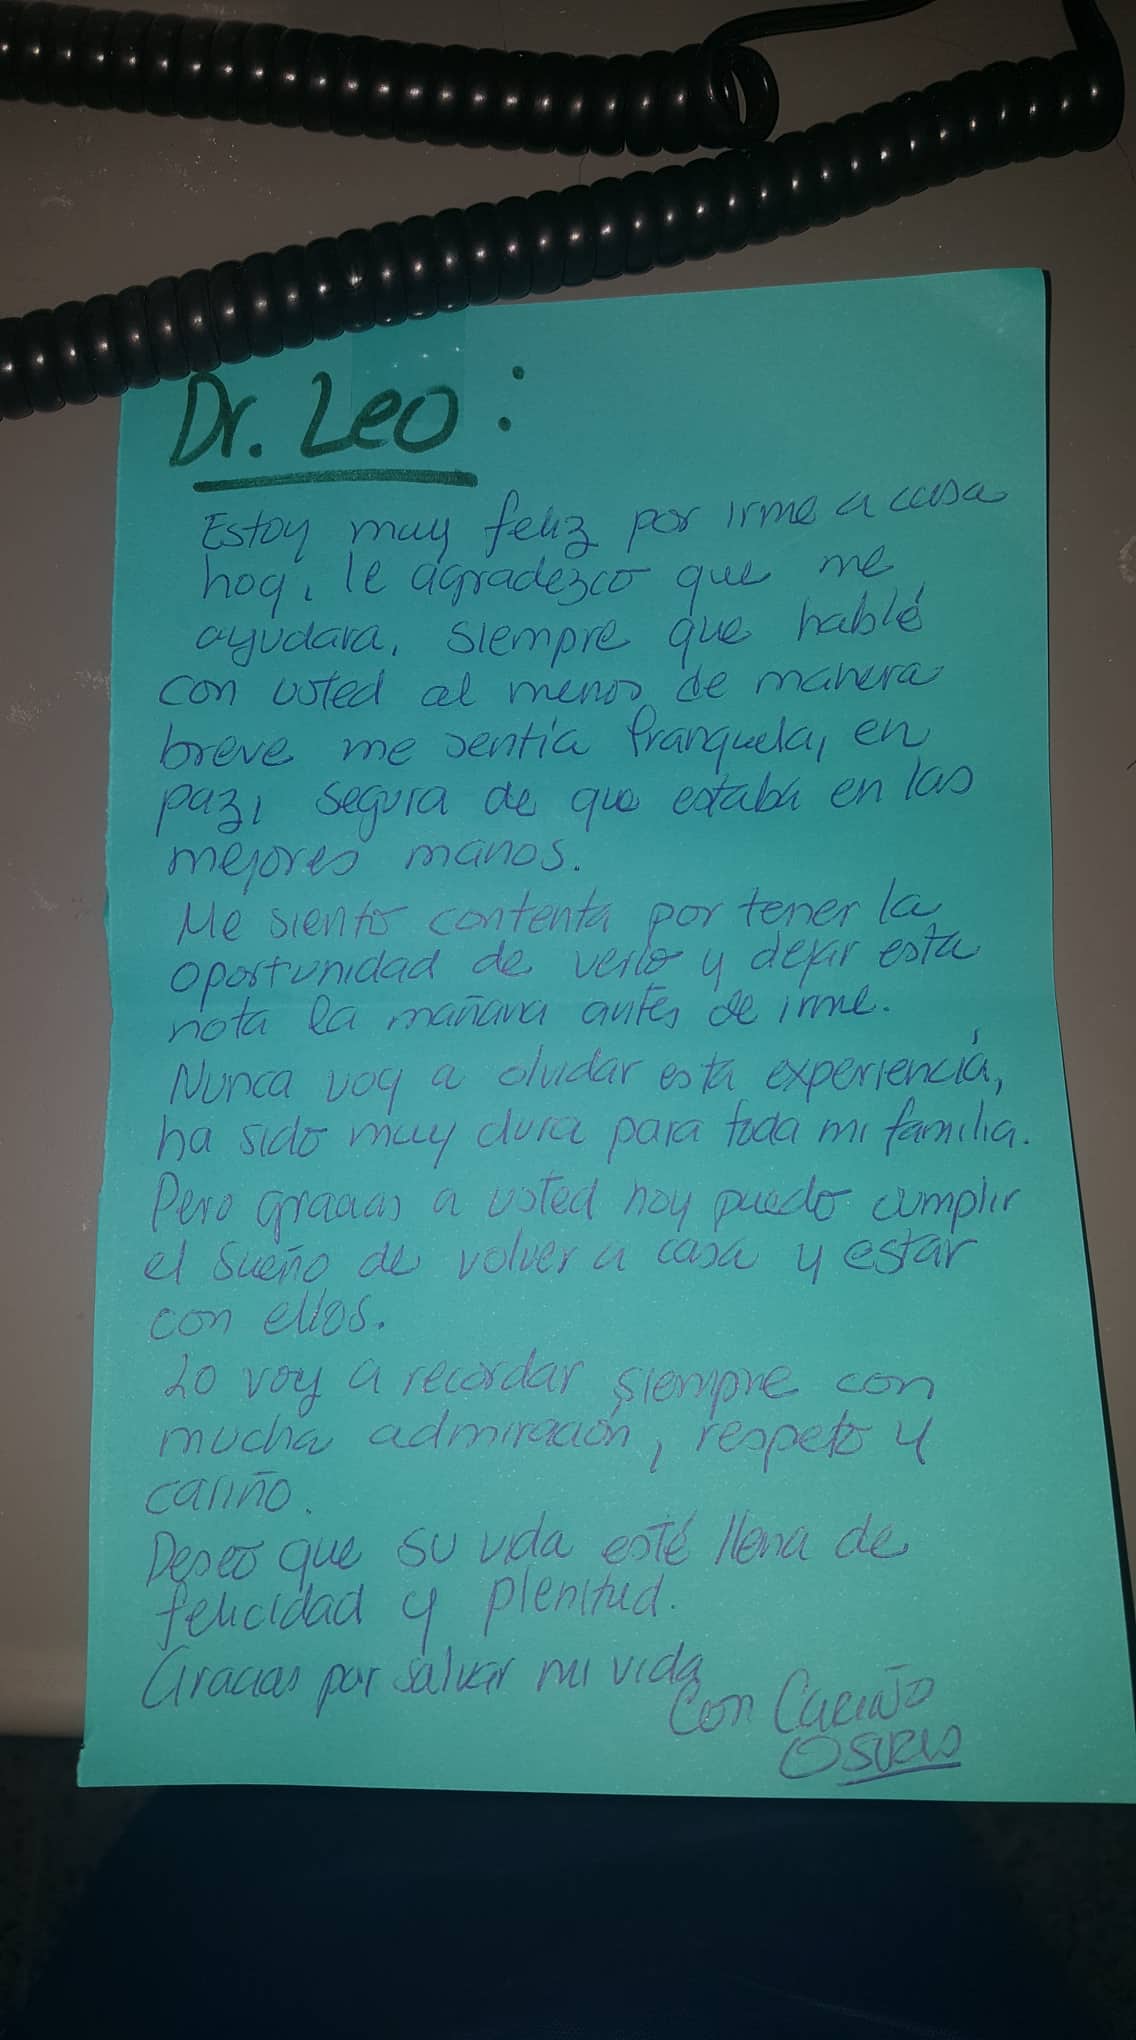 Dr. Leo:
Estoy muy feliz por irme a casa
hoy, le agradezco que me
ayudara, siempre que hablé
con usted al menos de manera
breve me sentía tranquila, en
paz, segura de que estaba en las
mejores manos.
Me siento contenta por tener la
oportunidad de verlo y dejar esta
nota la mañana antes de irme.
Nunca voy a olvidar esta experiencia,
ha sido muy dura para toda mi familia.
Pero gracias a usted hoy puedo cumplir
el sueño de volver a casa y estar
con ellos.
Lo voy a recordar siempre con
mucha admiración, respeto y
cariño.
Deseo que su vida esté llena de
felicidad y plenitud.
Gracias por salvar mi vida
Con Cariño